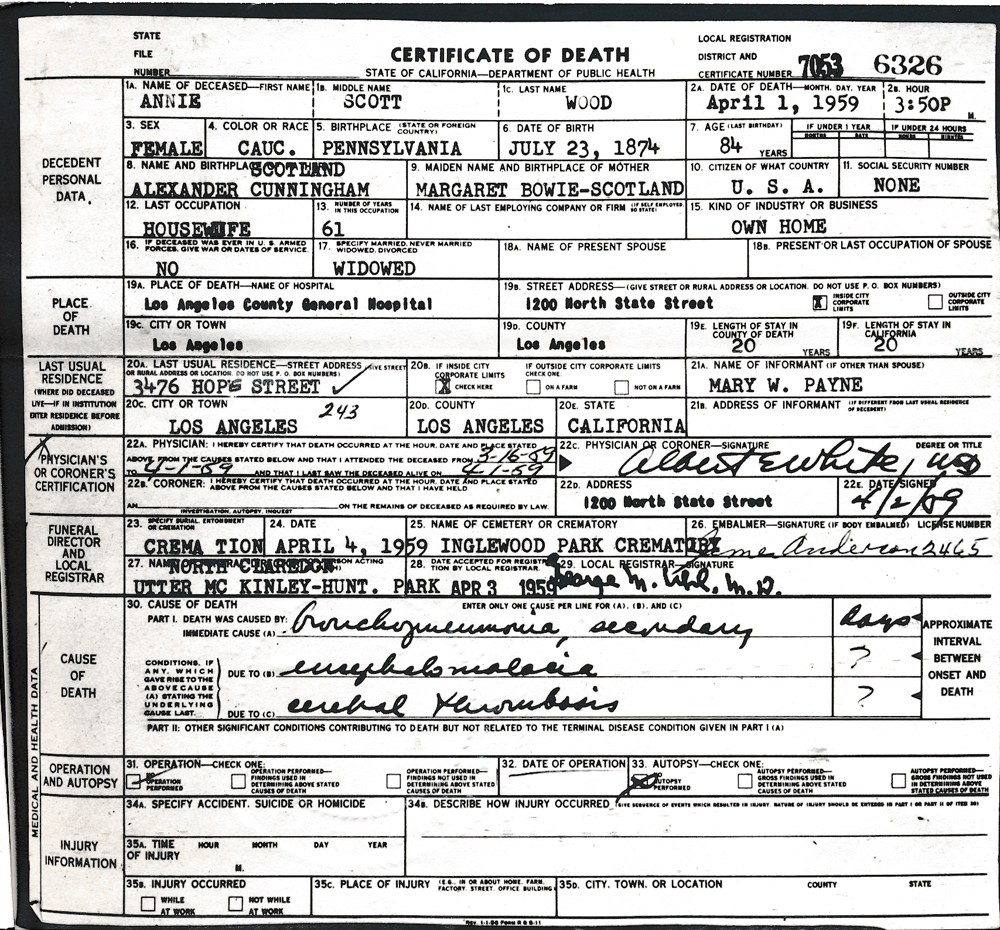 STATE
FILE
NUMBER
CERTIFICATE OF DEATH
STATE OF CALIFORNIA—DEPARTMENT OF PUBLIC HEALTH
LOCAL REGISTRATION
DISTRICT AND
CERTIFICATE NUMBER 7053 6326
DECEDENT
PERSONAL
DATA
1A. NAME OF DECEASED—FIRST NAME
ANNIE
1B. MIDDLE NAME
SCOTT
1C. LAST NAME
WOOD
2A. DATE OF DEATH—MONTH, DAY, YEAR
April 1, 1959
2B. HOUR
3:50P M.
3. SEX
FEMALE
4. COLOR OR RACE
CAUC.
5. BIRTHPLACE (STATE OR FOREIGN COUNTRY)
PENNSYLVANIA
6. DATE OF BIRTH
JULY 23, 1874
7. AGE (LAST BIRTHDAY)
84 YEARS
IF UNDER 1 YEAR
MONTHS DAYS
IF UNDER 24 HOURS
HOURS MINUTES
8. NAME AND BIRTHPLACE SCOTLAND
ALEXANDER CUNNINGHAM
9. MAIDEN NAME AND BIRTHPLACE OF MOTHER
MARGARET BOWIE-SCOTLAND
10. CITIZEN OF WHAT COUNTRY
U. S. A.
11. SOCIAL SECURITY NUMBER
NONE
12. LAST OCCUPATION
HOUSEWIFE
13. NUMBER OF YEARS IN THIS OCCUPATION
61
14. NAME OF LAST EMPLOYING COMPANY OR FIRM (IF SELF EMPLOYED, SO STATE)
15. KIND OF INDUSTRY OR BUSINESS
OWN HOME
16. IF DECEASED WAS EVER IN U. S. ARMED FORCES, GIVE WAR OR DATES OF SERVICE.
NO
17. SPECIFY MARRIED, NEVER MARRIED WIDOWED, DIVORCED
WIDOWED
18A. NAME OF PRESENT SPOUSE
18B. PRESENT OR LAST OCCUPATION OF SPOUSE
PLACE
OF
DEATH
19A. PLACE OF DEATH—NAME OF HOSPITAL
Los Angeles County General Hospital
19B. STREET ADDRESS—(GIVE STREET OR RURAL ADDRESS OR LOCATION. DO NOT USE P. O. BOX NUMBERS)
1200 North State Street
X INSIDE CITY CORPORATE LIMITS
OUTSIDE CITY CORPORATE LIMITS
19C. CITY OR TOWN
Los Angeles
19D. COUNTY
Los Angeles
19E. LENGTH OF STAY IN COUNTY OF DEATH
20 YEARS
19F. LENGTH OF STAY IN CALIFORNIA
20 YEARS
LAST USUAL
RESIDENCE
(WHERE DID DECEASED
LIVE—IF IN INSTITUTION
ENTER RESIDENCE BEFORE
ADMISSION)
20A. LAST USUAL RESIDENCE—STREET ADDRESS (GIVE STREET OR RURAL ADDRESS OR LOCATION. DO NOT USE P. O. BOX NUMBERS)
3476 HOPE STREET
20B. IF INSIDE CITY CORPORATE LIMITS
X CHECK HERE
IF OUTSIDE CITY CORPORATE LIMITS CHECK ONE:
ON A FARM
NOT ON A FARM
21A. NAME OF INFORMANT (IF OTHER THAN SPOUSE)
MARY W. PAYNE
20C. CITY OR TOWN 243
LOS ANGELES
20D. COUNTY
LOS ANGELES
20E. STATE
CALIFORNIA
21B. ADDRESS OF INFORMANT (IF DIFFERENT FROM LAST USUAL RESIDENCE OF DECEDENT)
PHYSICIAN'S
OR CORONER'S
CERTIFICATION
22A. PHYSICIAN: I HEREBY CERTIFY THAT DEATH OCCURRED AT THE HOUR, DATE AND PLACE STATED
ABOVE, FROM THE CAUSES STATED BELOW AND THAT I ATTENDED THE DECEASED FROM 3-16-59
TO 4-1-59 AND THAT I LAST SAW THE DECEASED ALIVE ON 4-1-59
22B. CORONER: I HEREBY CERTIFY THAT DEATH OCCURRED AT THE HOUR, DATE AND PLACE STATED
ABOVE FROM THE CAUSES STATED BELOW AND THAT I HAVE HELD
AN ON THE REMAINS OF DECEASED AS REQUIRED BY LAW.
INVESTIGATION, AUTOPSY, INQUEST
22C. PHYSICIAN OR CORONER—SIGNATURE DEGREE OR TITLE
Albert E White, MD
22D. ADDRESS
1200 North State Street
22E. DATE SIGNED
4/2/59
FUNERAL
DIRECTOR
AND
LOCAL
REGISTRAR
23. SPECIFY BURIAL, ENTOMBMENT OR CREMATION
CREMA TION
24. DATE
APRIL 4, 1959
25. NAME OF CEMETERY OR CREMATORY
INGLEWOOD PARK CREMATORY
26. EMBALMER—SIGNATURE (IF BODY EMBALMED) LICENSE NUMBER
Anderson 2465
27. NAME
UTTER MC KINLEY-HUNT. PARK
28. DATE ACCEPTED FOR REGISTRATION BY LOCAL REGISTRAR
APR 3 1959
29. LOCAL REGISTRAR—SIGNATURE
George M. Uhl, M. D.
MEDICAL AND HEALTH DATA
CAUSE
OF
DEATH
30. CAUSE OF DEATH ENTER ONLY ONE CAUSE PER LINE FOR (A), (B), AND (C)
PART I. DEATH WAS CAUSED BY:
IMMEDIATE CAUSE (A) bronchopneumonia, secondary days
CONDITIONS, IF ANY, WHICH GAVE RISE TO THE ABOVE CAUSE (A) STATING THE UNDERLYING CAUSE LAST.
DUE TO (B) encephalomalacia ?
DUE TO (C) cerebral thrombosis ?
APPROXIMATE
INTERVAL
BETWEEN
ONSET AND
DEATH
PART II: OTHER SIGNIFICANT CONDITIONS CONTRIBUTING TO DEATH BUT NOT RELATED TO THE TERMINAL DISEASE CONDITION GIVEN IN PART I (A)
OPERATION
AND AUTOPSY
31. OPERATION—CHECK ONE:
NO OPERATION PERFORMED
OPERATION PERFORMED—FINDINGS USED IN DETERMINING ABOVE STATED CAUSES OF DEATH
OPERATION PERFORMED—FINDINGS NOT USED IN DETERMINING ABOVE STATED CAUSES OF DEATH
32. DATE OF OPERATION
33. AUTOPSY—CHECK ONE:
AUTOPSY PERFORMED
AUTOPSY PERFORMED—GROSS FINDINGS USED IN DETERMINING ABOVE STATED CAUSES OF DEATH
AUTOPSY PERFORMED—GROSS FINDINGS NOT USED IN DETERMINING ABOVE STATED CAUSES OF DEATH
INJURY
INFORMATION
34A. SPECIFY ACCIDENT, SUICIDE OR HOMICIDE
34B. DESCRIBE HOW INJURY OCCURRED (GIVE SEQUENCE OF EVENTS WHICH RESULTED IN INJURY. NATURE OF INJURY SHOULD BE ENTERED IN PART I OR PART II OF ITEM 30)
35A. TIME OF INJURY HOUR MONTH DAY YEAR
M.
35B. INJURY OCCURRED
WHILE AT WORK
NOT WHILE AT WORK
35C. PLACE OF INJURY (E.G., IN OR ABOUT HOME, FARM, FACTORY, STREET, OFFICE BUILDING)
35D. CITY, TOWN, OR LOCATION COUNTY STATE